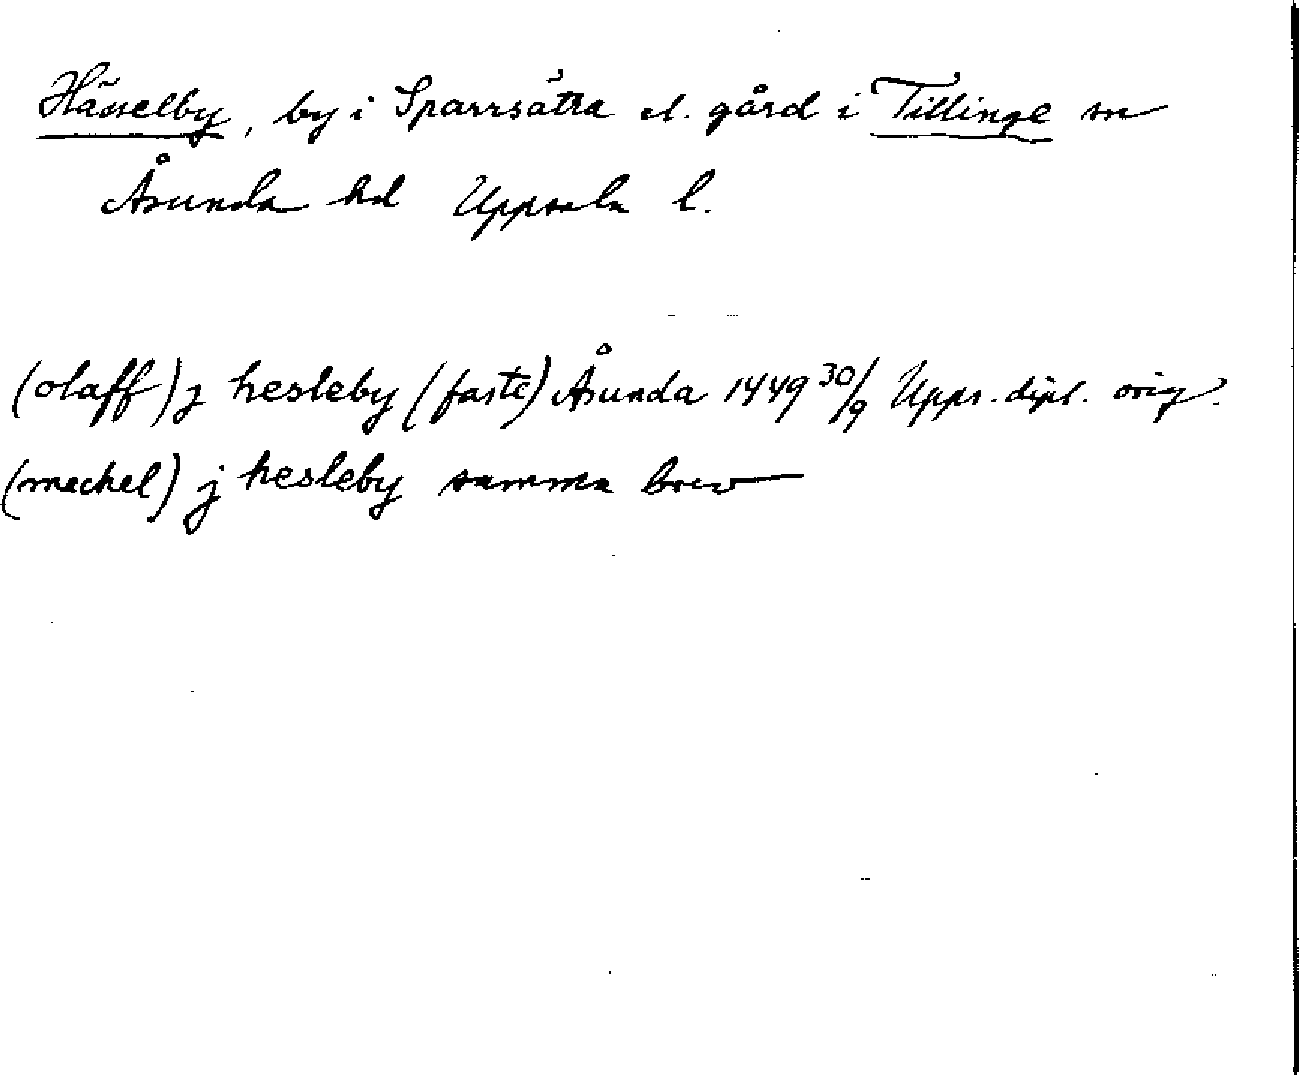 Hässelby, by i Sparrsätra el. gård i Tillinge sn
Åsunda hd Uppsala l.
(olaff) j hesleby (faste) Åsunda 1449 30/9 Upps. dipl. orig.
(mechel) j hesleby samma brev